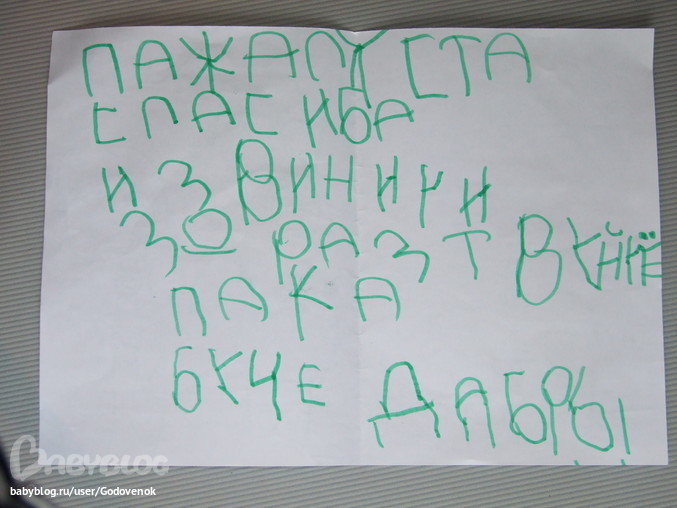 ПАЖАЛУСТА
СПАСИБА
ИЗВИНИНИ
ЗО РАЗТВУЙТЕ
ПАКА
БУЧЕ ДАБРЫ
BABYBLOG
babyblog.ru/user/Godovenok